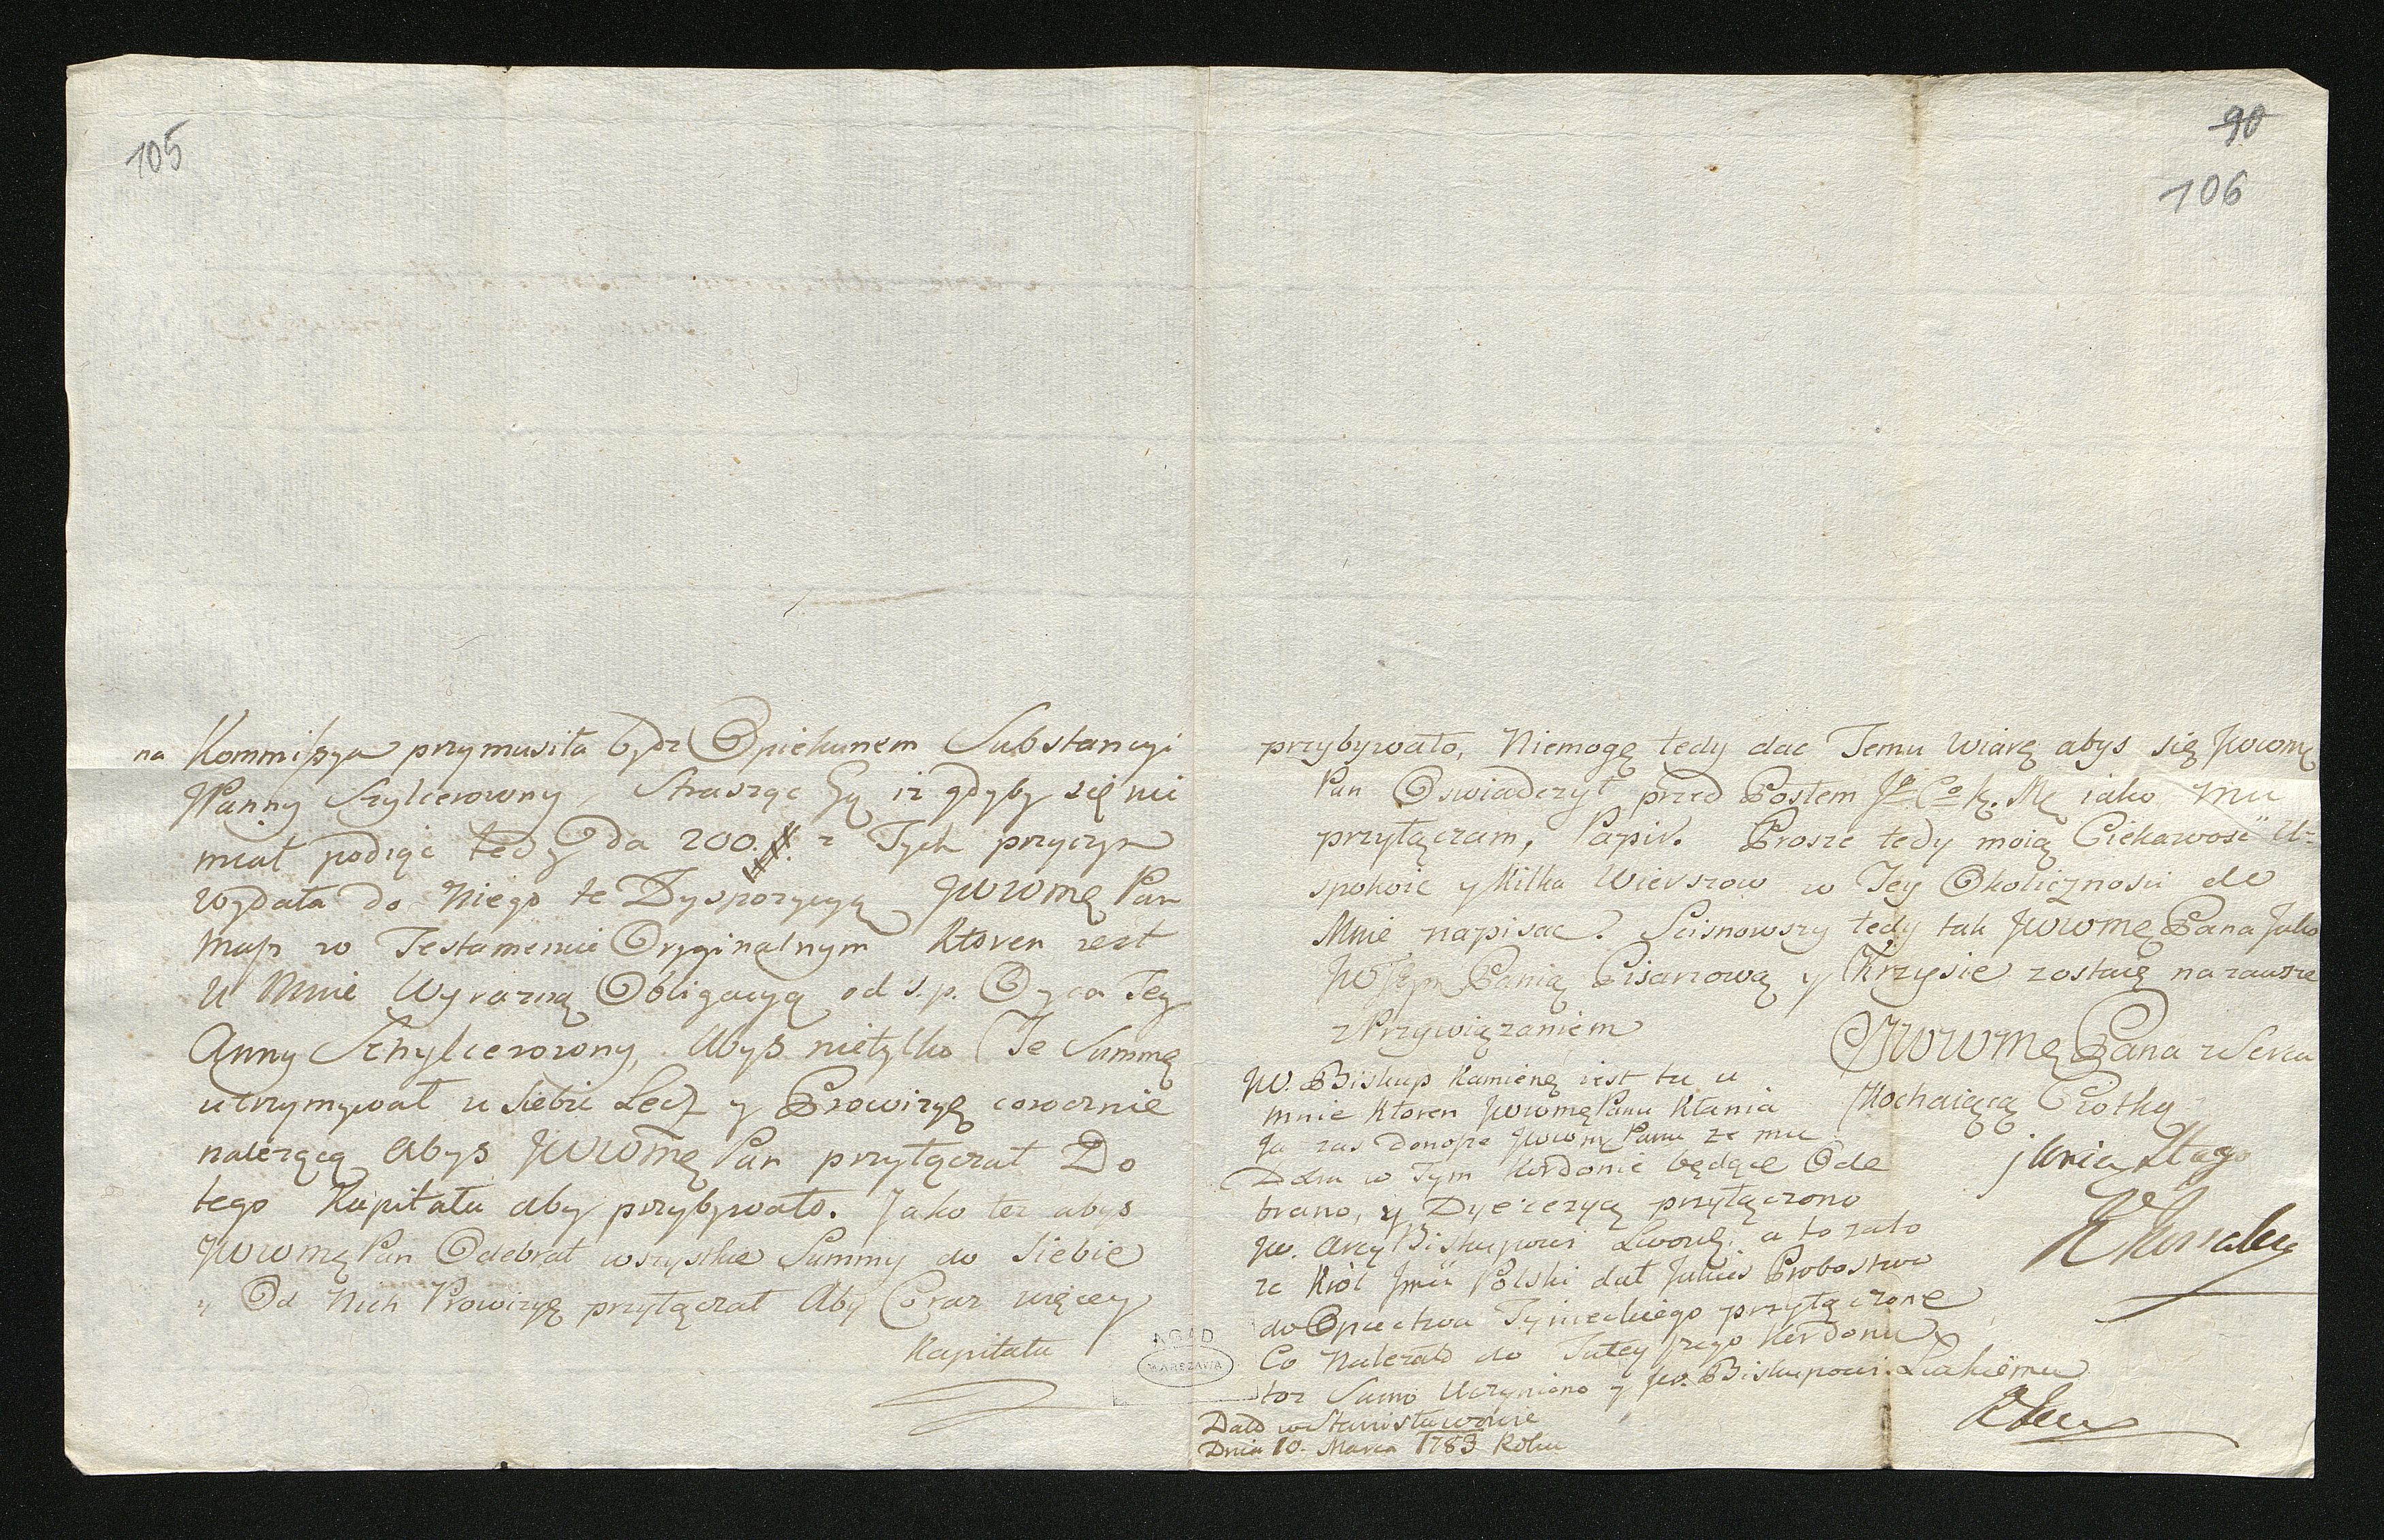 105
na Kommißya przymusiła bydz Opiekunem Substancyi
JPanny Szylcerowny, Strasząc Gą iż gdyby się nie
miał podiąć tedy da 200. z Tych przyczyn
wydała do Niego te Dyspozycyą JWWMę Pan
maß w Testamencie Oryginalnym Ktoren iest
U Mnie Wyrazną Obligacyą od s. p. Oyca Tey
Anny Schylcerowny, Abyß nietylko Te Summę
utrzymywał u siebie Lecz y Prowizyę corocznie
należącą abyś JWWMę Pan przyłączał Do
tego Kapitału aby przybywało. Jako też abyś
JWWMę Pan Odebrał wszystkie Summy do Siebie
y Od Nich Prowizyę przyłączał Aby Coraz więcey
Kapitału
AGAD
WARSZAWA
90
106
przybywało, Niemogę tedy dać Temu wiarę abyś się JWWMę
Pan Oswiadczył przed Posłem Jo Co K. Mę iako mu
przyłączam, Papir. Proszę tedy moią Ciekawość U=
spokoić y Kilka Wierszow w Tey Okoliczności do
Mnie napisać. Scisnowszy tedy tak JWWMę Pana Jako
JWJeym Panią Pisarzową y Krzysie zostaię na zawsze
z Przywiązaniem
JWWMę Pana z Serca
Kochaiącą Ciotką
i Unią Sługą
JW. Biskup Kamienę iest tu u
mnie Ktoren JWWMę Panu Kłania
Ja zas Donoßę JWWMę Panu że mu
Dobra w Tym Kordonie będące Ode
brano, y Dyecezyą przyłączono
JW. Arcy Biskupowi Lwowę: a to zato
że Król Jmść Polski dał Jakieś Probostwo
do Opactwa Tynieckiego przyłączone
Co Należało do Tuteyszego Kordonu
toż Samo Uczyniono y JW. Biskupowi Łuckiemu
Datą w Stanisławowie
Dnia 10. Marca 1783 Roku